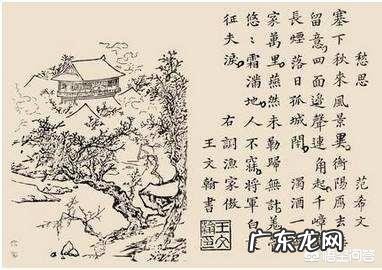 愁思 范希文
塞下秋來風景異衡陽雁去
留意四面邊聲連角起千嶂
長煙落日孤城閉 濁酒一
家萬里燕然未勒歸無計羌
悠〻霜滿地人不寐將軍白
征夫淚 右調漁家傲
王文翰書
广东龙网